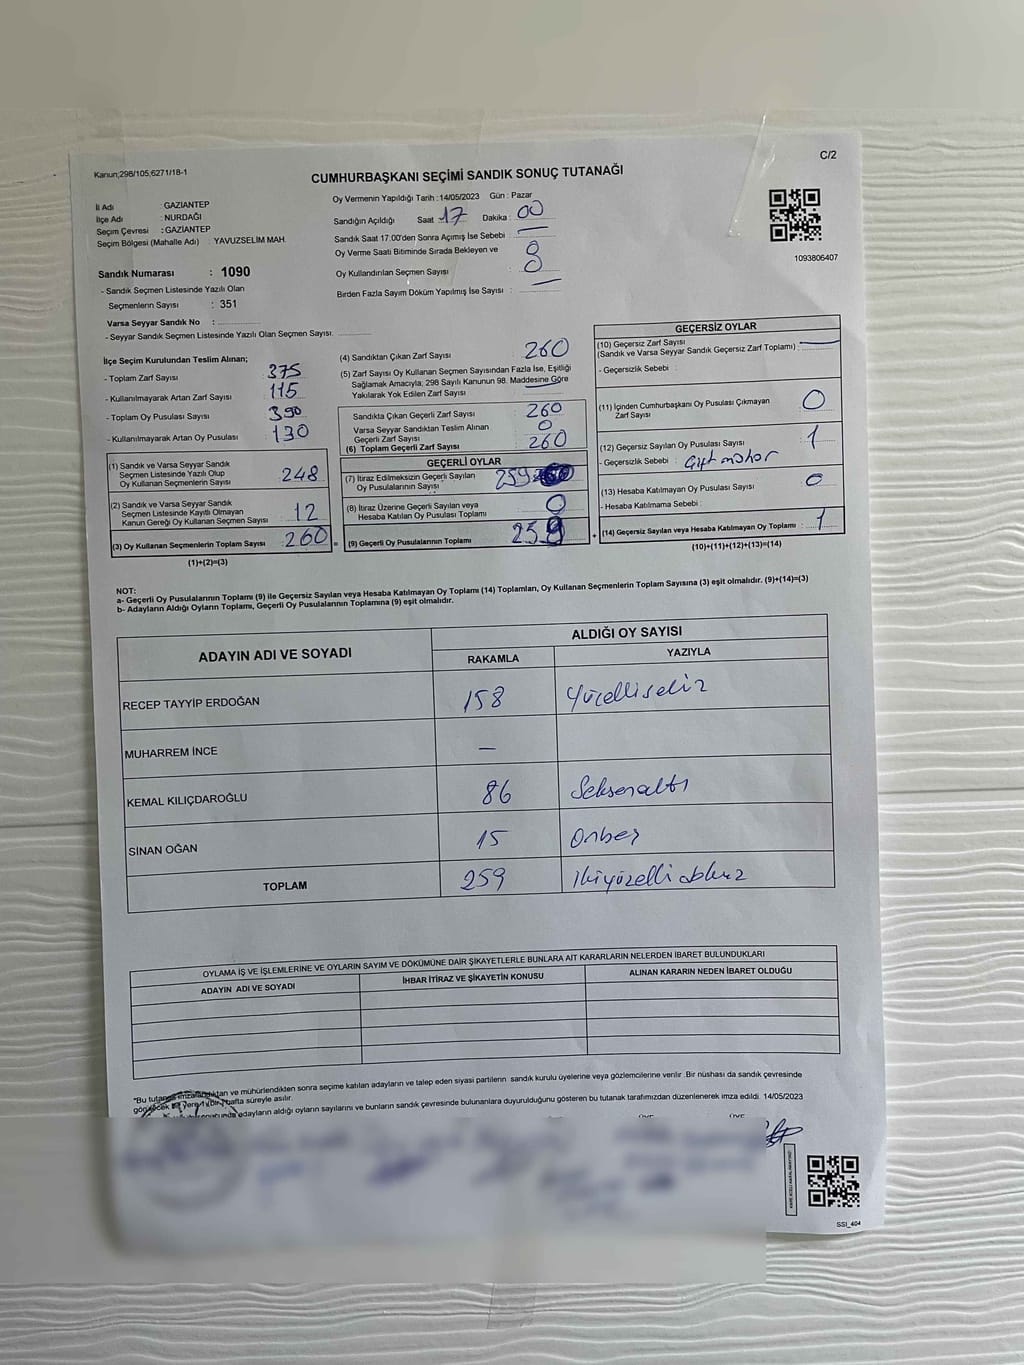 Kanun;298/105,6271/18-1
C/2
CUMHURBAŞKANI SEÇİMİ SANDIK SONUÇ TUTANAĞI
İl Adı : GAZIANTEP
İlçe Adı : NURDAĞI
Seçim Çevresi : GAZIANTEP
Seçim Bölgesi (Mahalle Adı) : YAVUZSELİM MAH.
Sandık Numarası : 1090
- Sandık Seçmen Listesinde Yazılı Olan
Seçmenlerin Sayısı : 351
Varsa Seyyar Sandık No :
- Seyyar Sandık Seçmen Listesinde Yazılı Olan Seçmen Sayısı:
Oy Vermenin Yapıldığı Tarih :14/05/2023 Gün : Pazar
Sandığın Açıldığı Saat 17 Dakika : 00
Sandık Saat 17.00'den Sonra Açımış İse Sebebi : —
Oy Verme Saati Bitiminde Sırada Bekleyen ve
Oy Kullandırılan Seçmen Sayısı : 8
Birden Fazla Sayım Döküm Yapılmış İse Sayısı : —
1093806407
İlçe Seçim Kurulundan Teslim Alınan;
- Toplam Zarf Sayısı 375
- Kullanılmayarak Artan Zarf Sayısı 115
- Toplam Oy Pusulası Sayısı 390
- Kullanılmayarak Artan Oy Pusulası 130
(1) Sandık ve Varsa Seyyar Sandık
Seçmen Listesinde Yazılı Olup
Oy Kullanan Seçmenlerin Sayısı 248
(2) Sandık ve Varsa Seyyar Sandık
Seçmen Listesinde Kayıtlı Olmayan
Kanun Gereği Oy Kullanan Seçmen Sayısı 12
(3) Oy Kullanan Seçmenlerin Toplam Sayısı 260 =
(1)+(2)=(3)
(4) Sandıktan Çıkan Zarf Sayısı 260
(5) Zarf Sayısı Oy Kullanan Seçmen Sayısından Fazla İse, Eşitliği
Sağlamak Amacıyla; 298 Sayılı Kanunun 98. Maddesine Göre
Yakılarak Yok Edilen Zarf Sayısı —
Sandıkta Çıkan Geçerli Zarf Sayısı 260
Varsa Seyyar Sandıktan Teslim Alınan
Geçerli Zarf Sayısı 0
(6) Toplam Geçerli Zarf Sayısı 260
GEÇERLİ OYLAR
(7) İtiraz Edilmeksizin Geçerli Sayılan
Oy Pusulalarının Sayısı 259
(8) İtiraz Üzerine Geçerli Sayılan veya
Hesaba Katılan Oy Pusulası Toplamı 0
(9) Geçerli Oy Pusulalarının Toplamı 259 +
GEÇERSİZ OYLAR
(10) Geçersiz Zarf Sayısı
(Sandık ve Varsa Seyyar Sandık Geçersiz Zarf Toplamı) : —
- Geçersizlik Sebebi :
(11) İçinden Cumhurbaşkanı Oy Pusulası Çıkmayan
Zarf Sayısı 0
(12) Geçersiz Sayılan Oy Pusulası Sayısı 1
- Geçersizlik Sebebi : Çift mühür
(13) Hesaba Katılmayan Oy Pusulası Sayısı 0
- Hesaba Katılmama Sebebi :
(14) Geçersiz Sayılan veya Hesaba Katılmayan Oy Toplamı : 1
(10)+(11)+(12)+(13)=(14)
NOT:
a- Geçerli Oy Pusulalarının Toplamı (9) ile Geçersiz Sayılan veya Hesaba Katılmayan Oy Toplamı (14) Toplamları, Oy Kullanan Seçmenlerin Toplam Sayısına (3) eşit olmalıdır. (9)+(14)=(3)
b- Adayların Aldığı Oyların Toplamı, Geçerli Oy Pusulalarının Toplamına (9) eşit olmalıdır.
ADAYIN ADI VE SOYADI
ALDIĞI OY SAYISI
RAKAMLA
YAZIYLA
RECEP TAYYİP ERDOĞAN 158 Yüzellisekiz
MUHARREM İNCE —
KEMAL KILIÇDAROĞLU 86 Seksenaltı
SİNAN OĞAN 15 Onbeş
TOPLAM 259 İkiyüzellidokuz
OYLAMA İŞ VE İŞLEMLERİNE VE OYLARIN SAYIM VE DÖKÜMÜNE DAİR ŞİKAYETLERLE BUNLARA AİT KARARLARIN NELERDEN İBARET BULUNDUKLARI
ADAYIN ADI VE SOYADI
İHBAR İTİRAZ VE ŞİKAYETİN KONUSU
ALINAN KARARIN NEDEN İBARET OLDUĞU
*Bu tutanak imzalandıktan ve mühürlendikten sonra seçime katılan adayların ve talep eden siyasi partilerin sandık kurulu üyelerine veya gözlemcilerine verilir. Bir nüshası da sandık çevresinde
görülecek bir yere 1 (bir) hafta süreyle asılır.
adayların aldığı oyların sayılarını ve bunların sandık çevresinde bulunanlara duyurulduğunu gösteren bu tutanak tarafımızdan düzenlenerek imza edildi. 14/05/2023
SSI_404